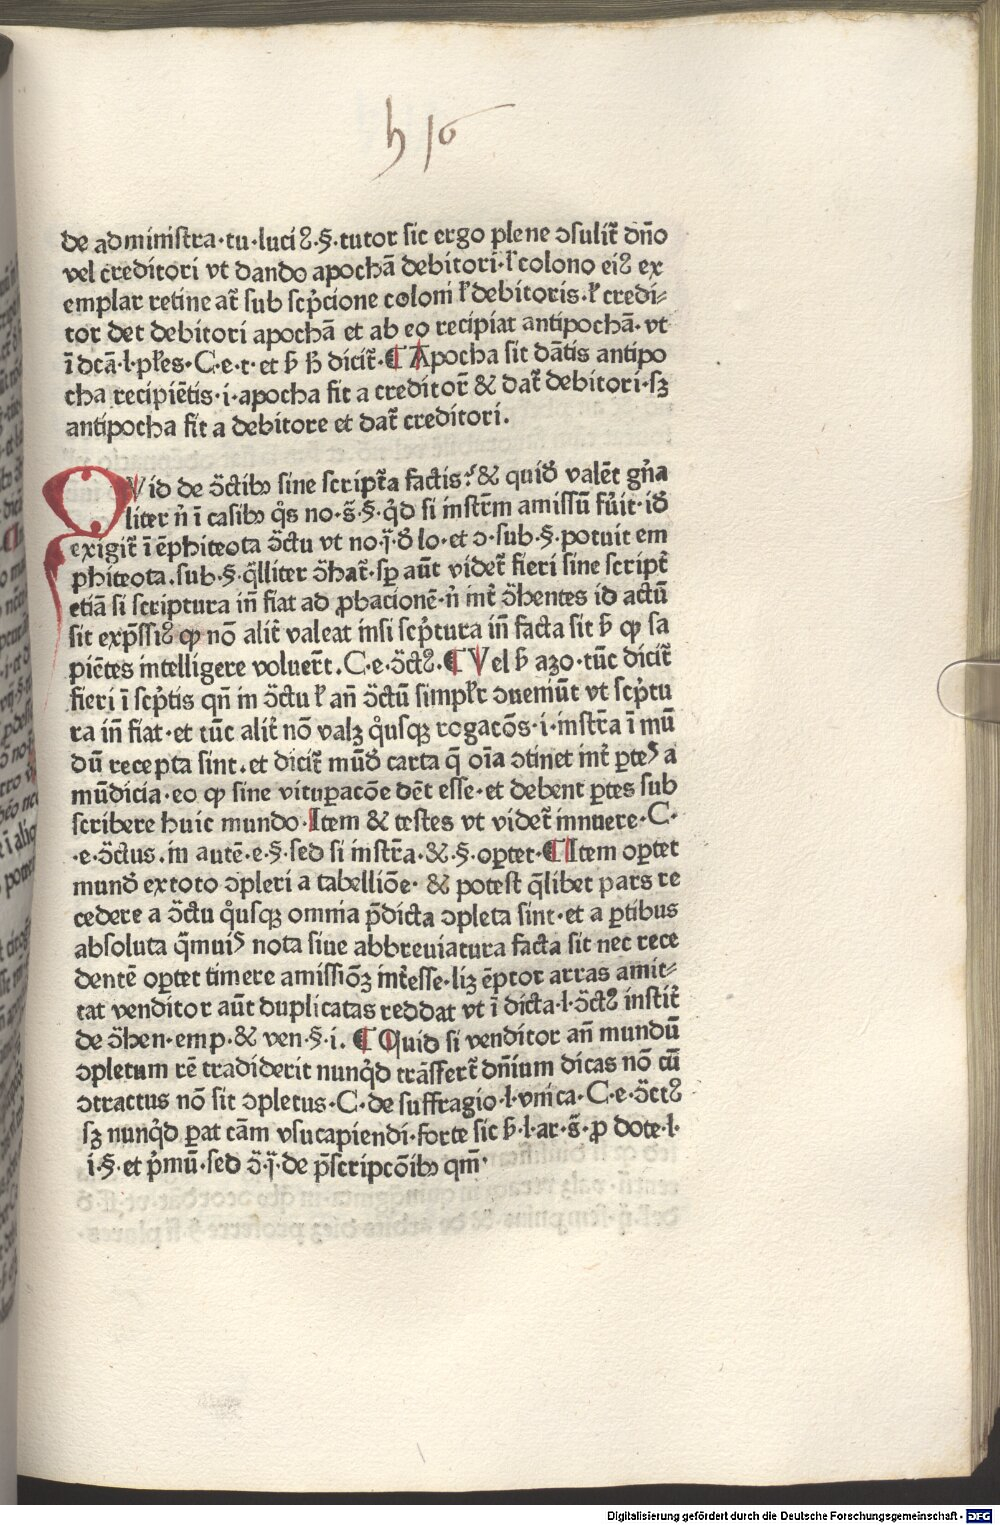 h 16
de administra·tu·luci⁹.§.tutor sic ergo plene ↄsulit᷑ dño
vel creditori vt dando apochã debitori·ł colono ei⁹ ex
emplar retineat᷑ sub scp̃cione coloni ł debitoris·ł credi⸗
tor det debitori apochã et ab eo recipiat antipochã·vt
ĩ dcã·l·płes·C·e·t·et ƀ ħ dicit᷑·¶ Apocha sit dãtis antipo
cha recipiẽtis·i·apocha fit a creditor᷑ & dat᷑ debitori·sꝫ
antipocha fit a debitore et dat᷑ creditori.
QVid de ↄ̃ctibꝰ sine script᷑a factis? & quid̃ valẽt gña
liter ñ ĩ casibꝰ q̊s no·s̃·§·q̊d si instr̃m amissũ fũit·id̃
exigit᷑ ĩ ẽphiteota ↄ̃ctu vt no·j̃·d̃ lo·et ↄ·sub·§·potuit em
phiteota.sub·§·q̃lliter ↄ̃hat᷑·sꝑ aũt videt᷑ fieri sine script᷑
etiã si scriptura iñ fiat ad ꝓbacionẽ·ñ int᷑ ↄ̃hentes id actũ
sit exp̃ssi⁹ ꝙ nõ alit᷑ valeat insi scp̃tura iñ facta sit ƀ ꝙ sa
piẽtes intelligere voluer̃t.C·e·ↄ̃ct⁹.¶ Vel ƀ azo·tũc dicit᷑
fieri ĩ scp̃tis qñ in ↄ̃ctu ł añ ↄ̃ctũ simpłr ↄueniũt vt scp̃tu
ra iñ fiat·et tũc alit᷑ nõ valꝫ q̊usqꝫ rogacõs·i·instr̃a ĩ mũ
dũ recepta sint.et dicit᷑ mũd̃ carta q̃ oĩa ↄtinet int᷑ ꝑtes a
mũdicia·eo ꝙ sine vituꝑacõe dẽt esse·et debent ꝑtes sub
scribere huic mundo·Item & testes vt videt᷑ innuere·C·
·e·ↄ̃ctus.in autẽ·e·§·sed si instr̃a·&·§·oꝑtet·¶ Item oꝑtet
mund̃ ex toto ↄpleri a tabelliõe· & potest q̃libet pars re
cedere a ↄ̃ctu q̊usqꝫ omnia p̃dicta ↄpleta sint·et a ꝑtibus
absoluta q̃muis nota siue abbreuiatura facta sit nec rece
dentẽ oꝑtet timere amissiõꝫ int᷑esse·liꝫ ẽptor arras amit⸗
tat venditor aũt duplicatas reddat vt ĩ dicta·l·ↄ̃ct⁹ instit᷑
de ↄ̃hen·emp·& ven·§·i. ¶ Quid si venditor añ mundũ
ↄpletum rẽ tradiderit nunq̊d trãsfert᷑ dñium dicas nõ cũ
ↄtractus nõ sit ↄpletus·C·de suffragio·l·vnica·C·e·ↄ̃ct⁹
sꝫ nunq̊d ꝑat cãm vsucapiendi·forte sic ƀ·l·ar·s̃·ꝓ dote·l·
i·§·et p̃mũ·sed ↄ̃·j̃·de p̃scripcõibꝰ qm̃·
Digitalisierung gefördert durch die Deutsche Forschungsgemeinschaft - DFG